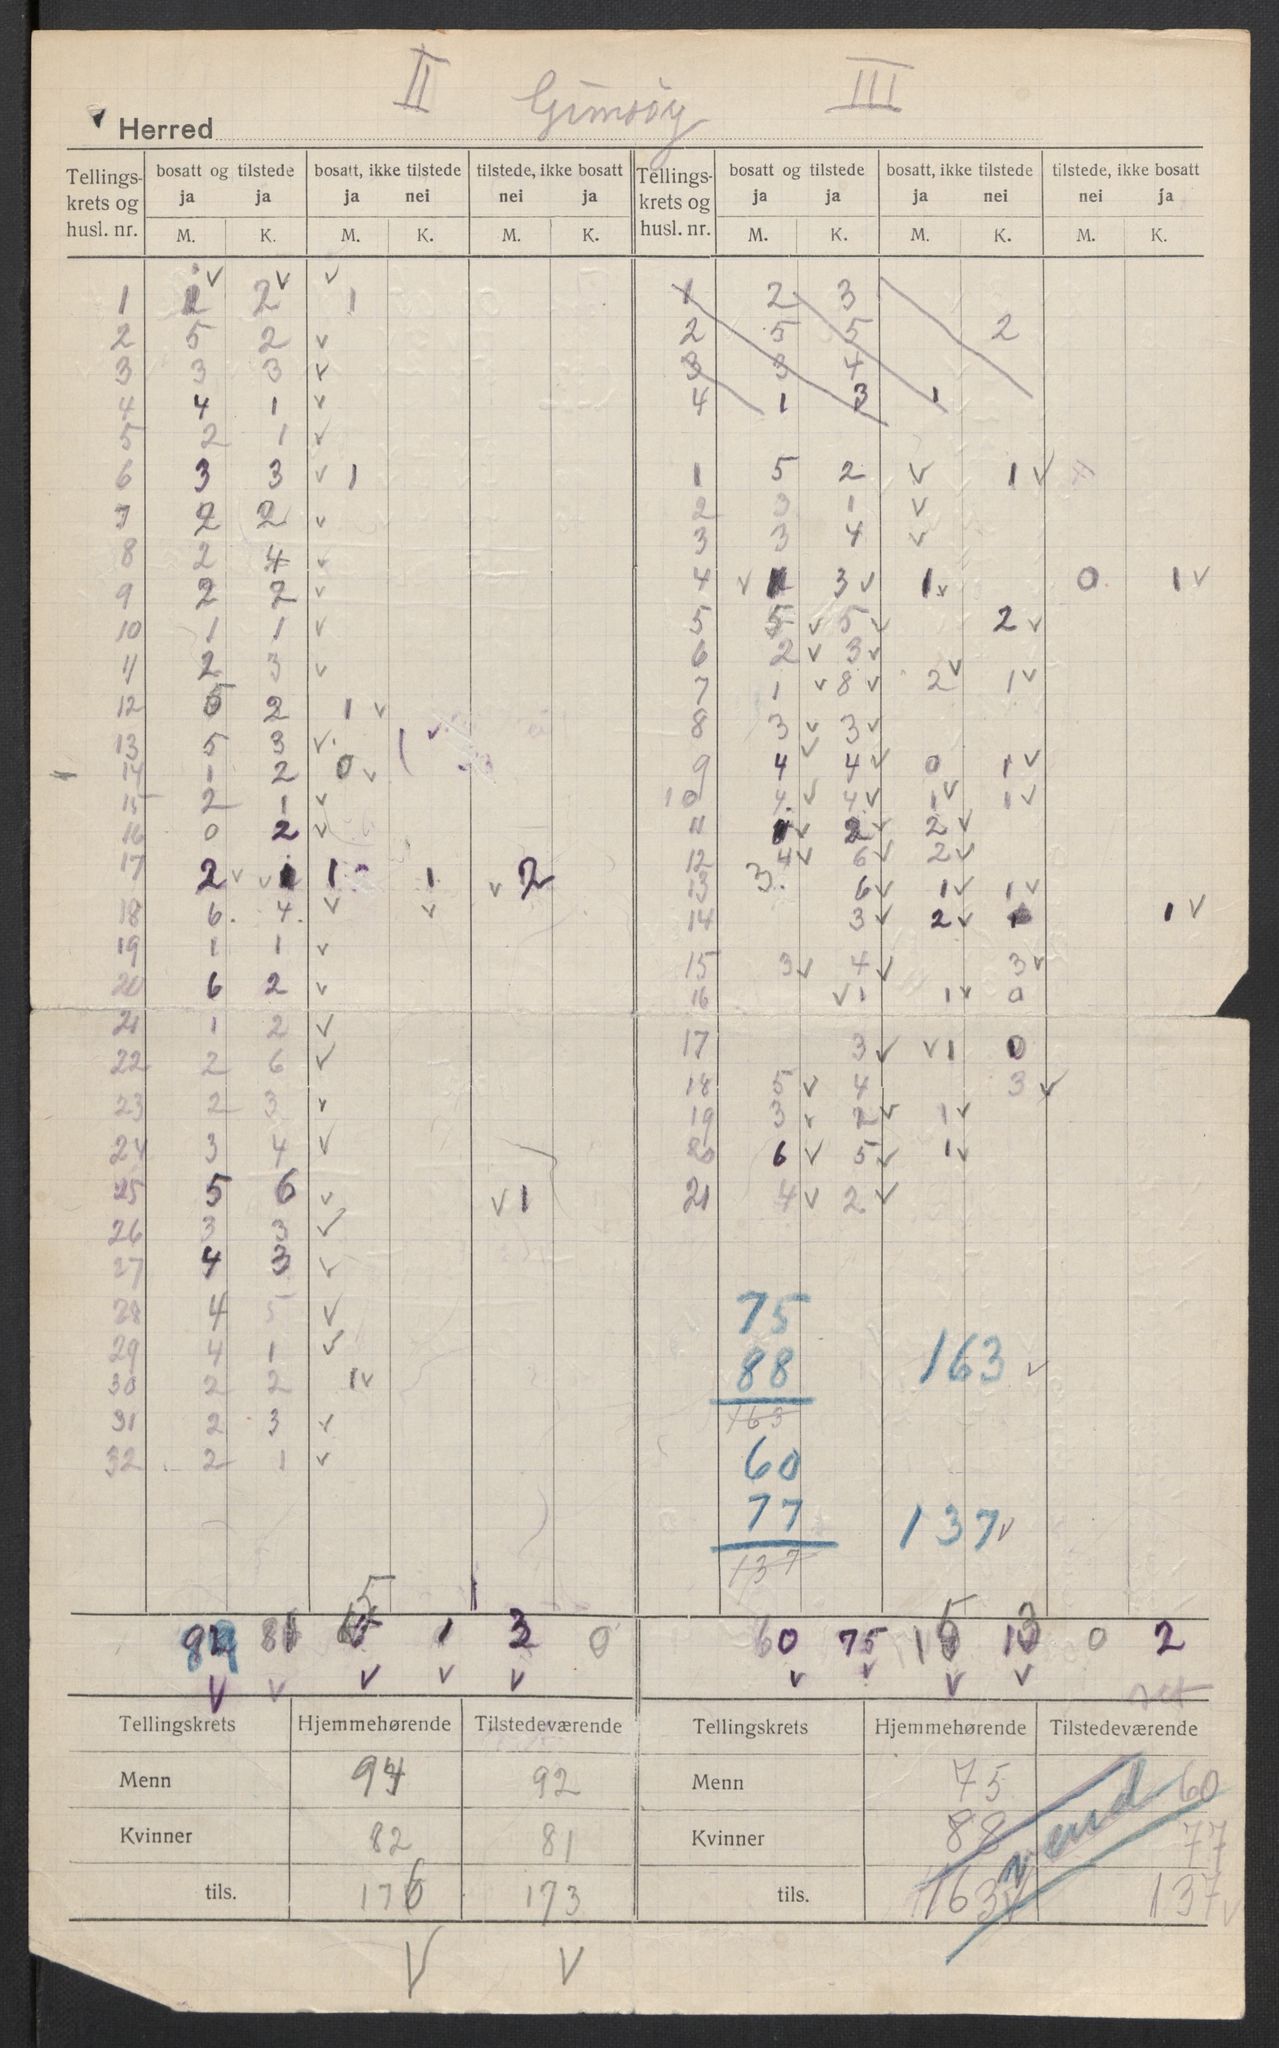 II Gimsøy III
Herred
Tellings- krets og husl. nr. | bosatt og tilstede ja ja | bosatt, ikke tilstede ja nei | tilstede, ikke bosatt nei ja | Tellings- krets og husl. nr. | bosatt og tilstede ja ja | bosatt, ikke tilstede ja nei | tilstede, ikke bosatt nei ja
M. K. M. K. M. K. M. K. M. K. M. K.
1 2 1 1 2 3
2 5 2 2 5 5 2
3 3 3 3 3 4
4 4 1 4 1 3 1
5 2 1
6 3 3 1 1 5 2 1
7 2 2 2 3 1
8 2 4 3 3 4
9 2 2 4 3 1 0 1
10 1 1 5 5 5 2
11 2 3 6 2 3
12 5 2 1 7 1 8 2 1
13 5 3 8 3 3
14 1 2 0 9 4 4 0 1
15 2 1 10 4 4 1 1
16 0 2 11 2 2
17 2 1 1 1 2 12 4 6 2
18 6 4 13 3 6 1 1
19 1 1 14 3 2 1
20 6 2 15 3 4 3
21 1 2 16 1 1 0
22 2 6 17 3 1 0
23 2 3 18 5 4 3
24 3 4 19 3 2 1
25 5 6 1 20 6 5 1
26 3 3 21 4 2
27 4 3
28 4 5 75
29 4 1 88 163
30 2 2 1 163
31 2 3 60
32 2 1 77 137
137
89 81 5 1 3 0 60 75 15 13 0 2
Tellingskrets Hjemmehørende Tilstedeværende Tellingskrets Hjemmehørende Tilstedeværende
Menn 94 92 Menn 75 60
Kvinner 82 81 Kvinner 88 77
tils. 176 173 tils. 163 137
vend